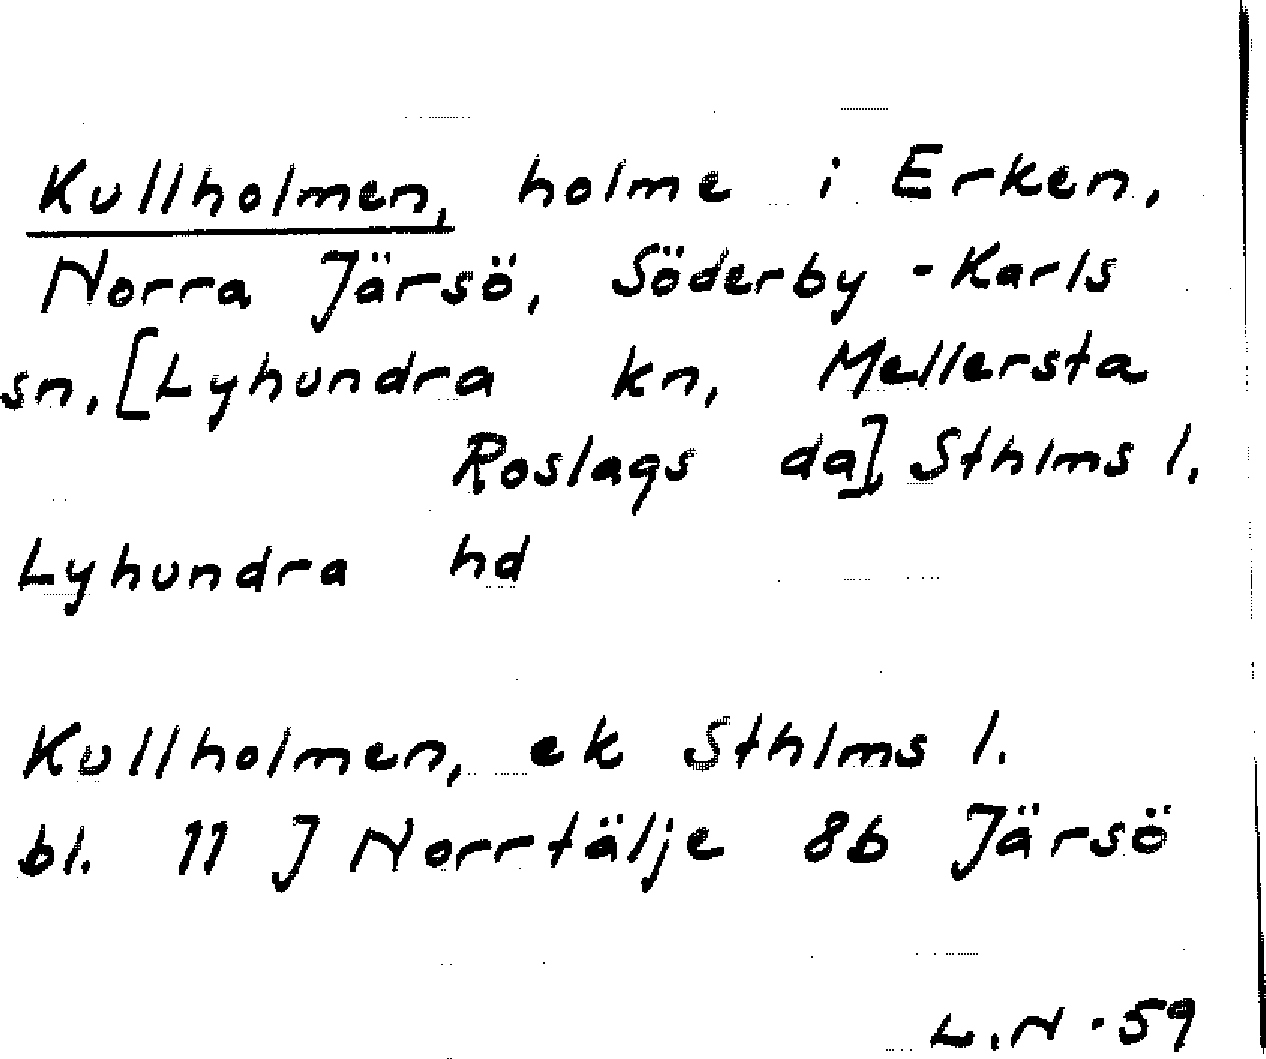 Kullholmen, holme i Erken,
Norra Järsö, Söderby-Karls
sn, [Lyhundra kn, Mellersta
Roslags da], Sthlms l.
Lyhundra hd
Kullholmen, ek Sthlms l.
bl. 11 J Norrtälje 8b Järsö
L.N-59